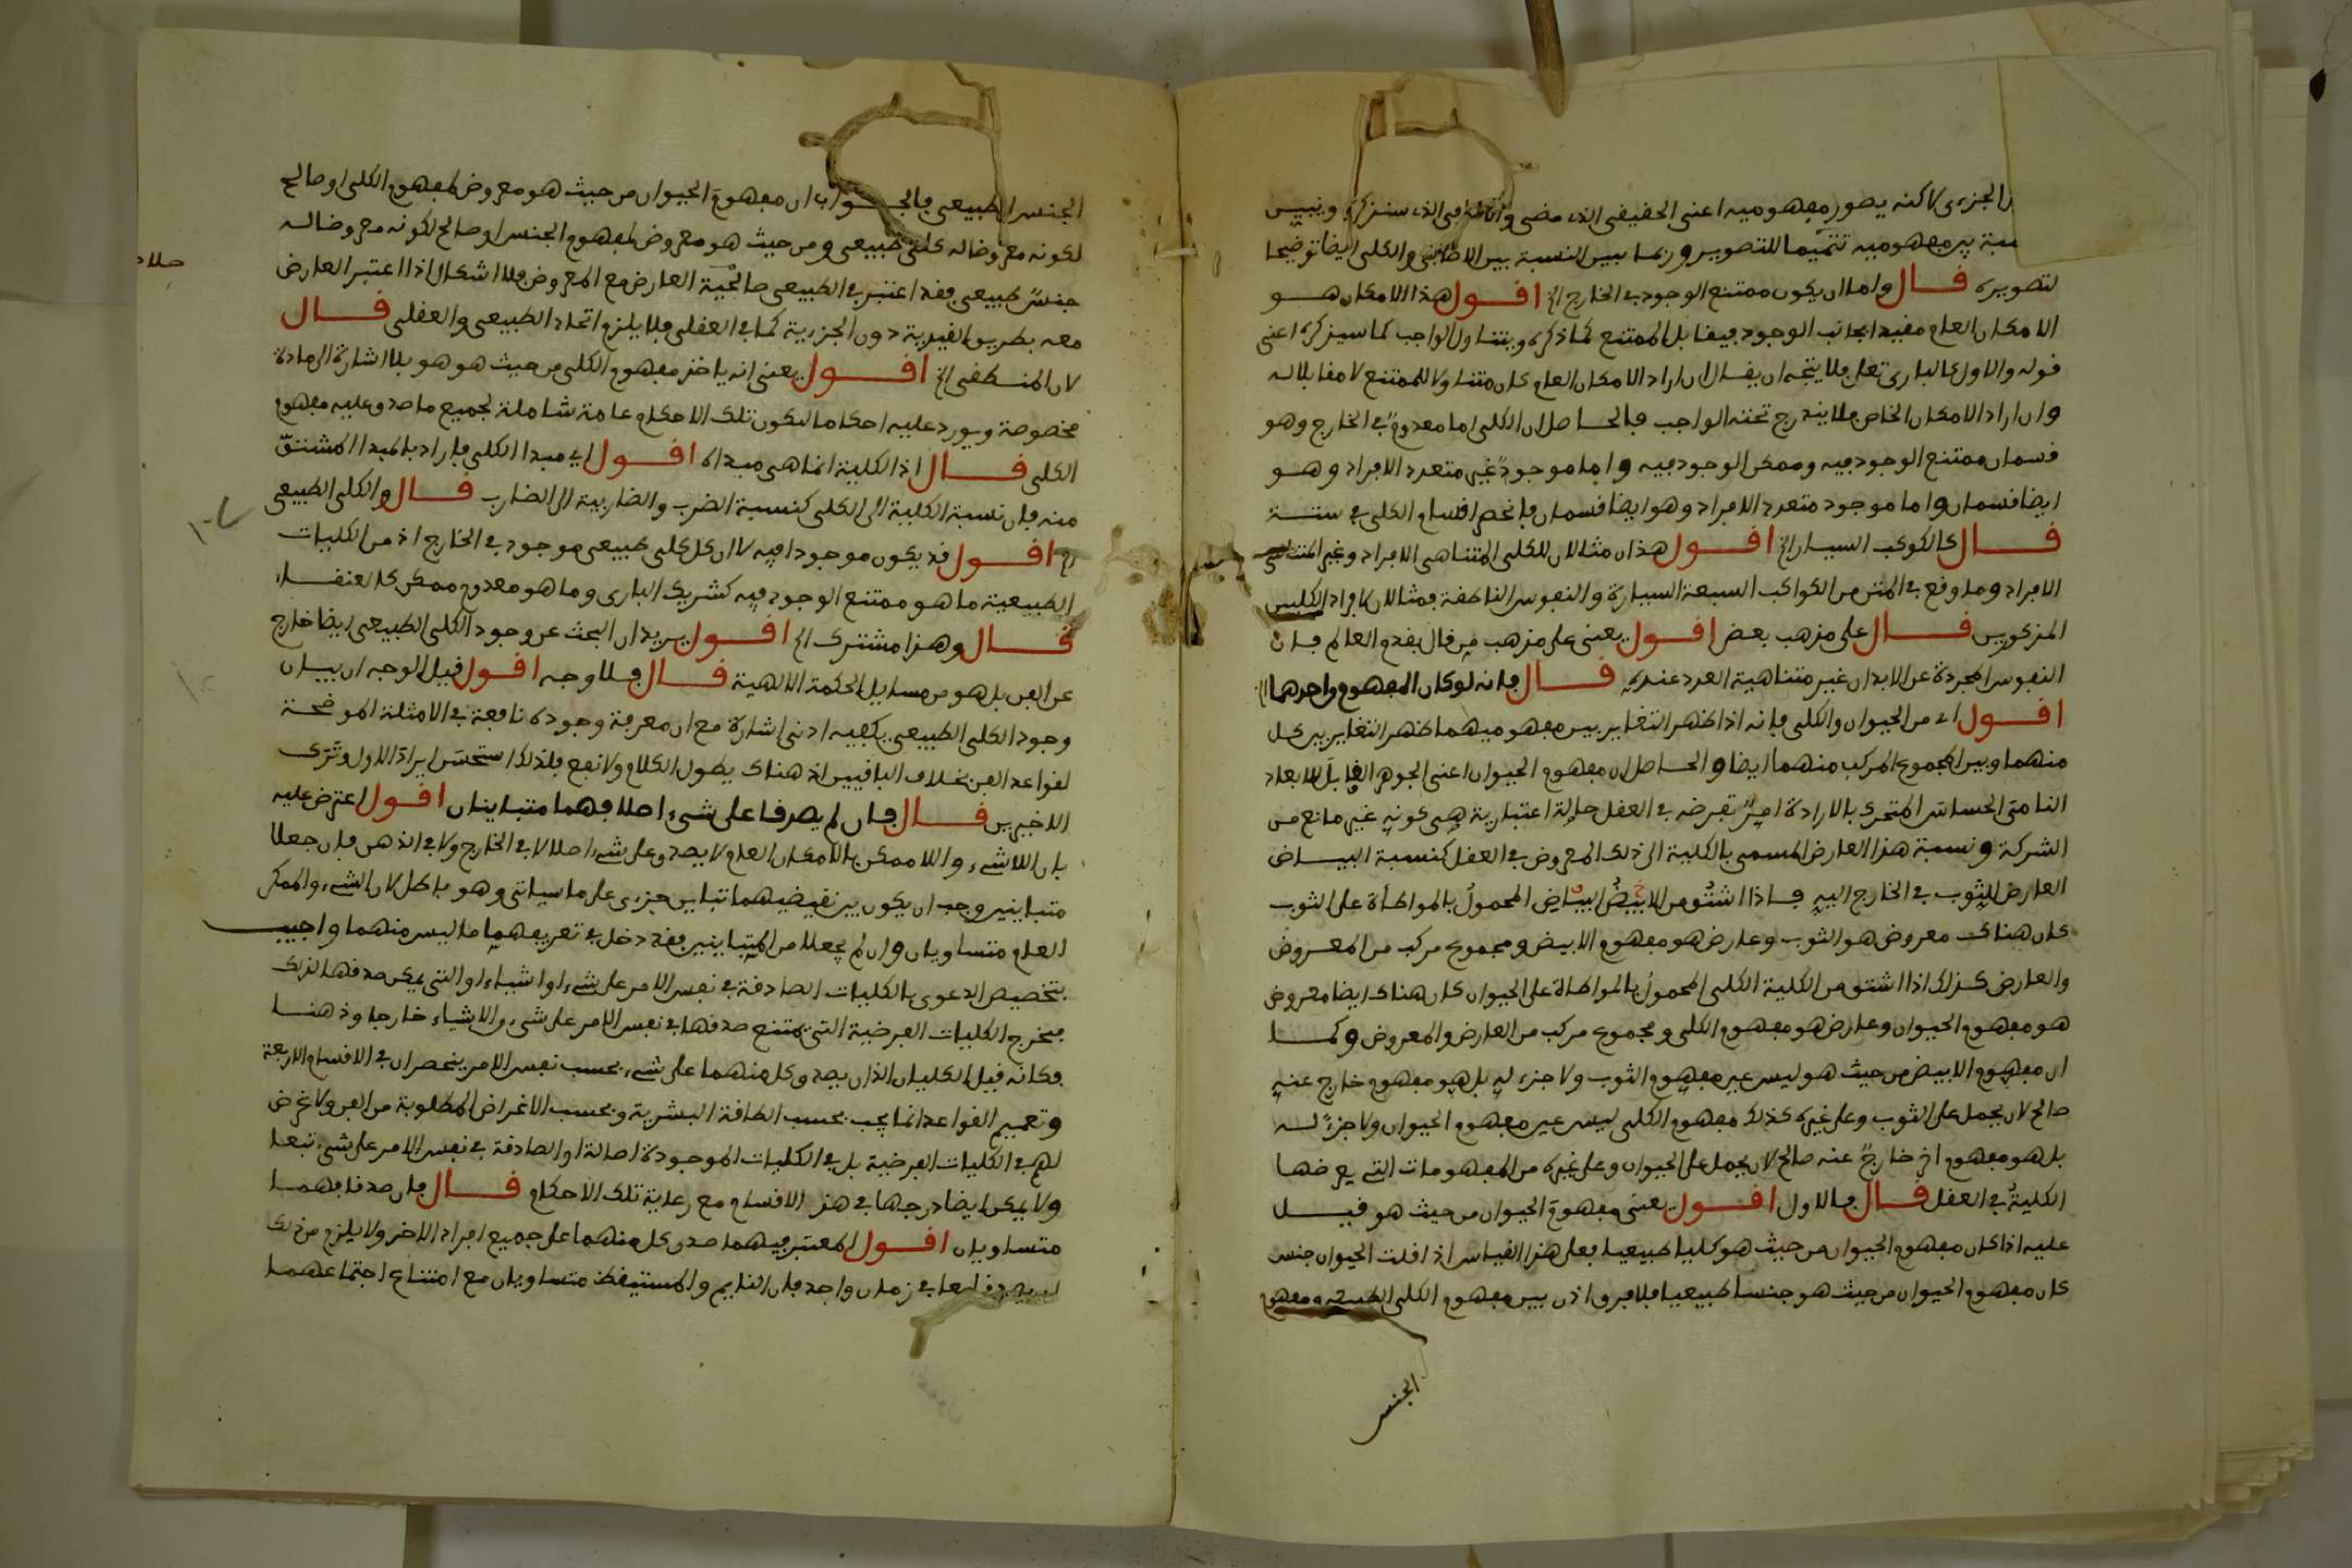 الجزءى لاكنه يصور مفهوميه اعنى الحقيقى الذى مضى والاضافى الذى سنذكره ويبين
بين مفهوميه تتميما للتصوير وربما يبين النسبة بين الاضافى والكلى ايضا توضيحا
لتصويره قال واما ان يكون ممتنع الوجود فى الخارج الخ اقول هذا الامكان هو
الامكان العام مقيدا بجانب الوجود فيقابل الممتنع كما ذكره ويتناول الواجب كما سيذكره اعنى
قوله والاول كالبارى تعلى فلا يتجه ان يقال ان اراد الامكان العام كان متناولا للممتنع لا مقابلا له
وان اراد الامكان الخاص فلا يندرج تحته الواجب فالحاصل ان الكلى اما معدوم فى الخارج وهو
قسمان ممتنع الوجود فيه وممكن الوجود فيه واما موجود غير متعدد الافراد وهو
ايضا قسمان واما موجود متعدد الافراد وهو ايضا قسمان فانحصر اقسام الكلى فى ستة
قال كالكوكب السيار الخ اقول هذان مثالان للكلى المتناهى الافراد وغير المتناهى
الافراد وما وقع فى المتن من الكواكب السبعة السيارة والنفوس الناطقة فمثالان لافراد الكليين
المذكورين قال على مذهب بعض اقول يعنى على مذهب من قال بقدم العالم فان
النفوس المجردة عن الابدان غير متناهية العدد عندهم قال فانه لو كان المفهوم واحدهما الخ
اقول اى من الحيوان والكلى فانه اذا ظهر التغاير بين مفهوميهما ظهر التغاير بين كل
منهما وبين المجموع المركب منهما ايضا والحاصل ان مفهوم الحيوان اعنى الجوهر القابل للابعاد
النامى الحساس المتحرك بالارادة امر تعرضه فى العقل حالة اعتبارية هى كونه غير مانع من
الشركة ونسبة هذا العارض المسمى بالكلية الى ذلك المعروض فى العقل كنسبة البياض
العارض للثوب فى الخارج اليه فاذا اشتق من الابيض البياض المحمول بالمواطأة على الثوب
كان هناك معروض هو الثوب وعارض هو مفهوم الابيض ومجموع مركب من المعروض
والعارض كذلك اذا اشتق من الكلية الكلى المحمول بالمواطاة على الحيوان كان هناك ايضا معروض
هو مفهوم الحيوان وعارض هو مفهوم الكلى ومجموع مركب من العارض والمعروض وكما
ان مفهوم الابيض من حيث هو ليس عين مفهوم الثوب ولا جزء له بل هو مفهوم خارج عنه
صالح لان يحمل على الثوب وعلى غيره كذلك مفهوم الكلى ليس عين مفهوم الحيوان ولا جزء له
بل هو مفهوم اخر خارج عنه صالح لان يحمل على الحيوان وعلى غيره من المفهومات التى يعرضها
الكلية فى العقل قال فالاول اقول يعنى مفهوم الحيوان من حيث هو قيل
عليه اذا كان مفهوم الحيوان من حيث هو كليا طبيعيا فعلى هذا القياس اذا قلت الحيوان جنس
كان مفهوم الحيوان من حيث هو جنسا طبيعيا فلا فرق اذن بين مفهوم الكلى الطبيعى ومفهوم
الجنس
الجنس الطبيعى فالجواب ان مفهوم الحيوان من حيث هو معروض لمفهوم الكلى او صالح
لكونه معروضا له كلى طبيعى ومن حيث هو معروض لمفهوم الجنس او صالح لكونه معروضا له
جنس طبيعى فقد اعتبر فى الطبيعى صالحية العارض مع المعروض فلا اشكال اذا اعتبر العارض
معه بطريق القيدية دون الجزءية كما فى العقلى فلا يلزم اتحاد الطبيعى والعقلى قال
لان المنطقى الخ اقول يعنى انه ياخذ مفهوم الكلى من حيث هو هو بلا اشارة الى مادة
مخصوصة ويورد عليه احكاما لتكون تلك الاحكام عامة شاملة لجميع ما صدق عليه مفهوم
الكلى قال اذ الكلية انما هى مبداه اقول اى مبدا الكلى فاراد بالمبدا المشتق
منه فان نسبة الكلية الى الكلى كنسبة الضرب والضاربية الى الضارب قال والكلى الطبيعى
الخ اقول قد يكون موجودا فيه لا ان كل كلى طبيعى موجود فى الخارج اذ من الكليات
الطبيعية ما هو ممتنع الوجود فيه كشريك البارى وما هو معدوم ممكن كالعنقاء
قال وهذا مشترك الخ اقول يريد ان البحث عن وجود الكلى الطبيعى ايضا خارج
عن الفن بل هو من مسايل الحكمة الالهية قال فلا وجه اقول قيل الوجه ان بيان
وجود الكلى الطبيعى يكفيه ادنى اشارة مع ان معرفة وجوده نافعة فى الامثلة الموضحة
لقواعد الفن بخلاف الباقيين اذ هناك يطول الكلام ولا نفع فلذلك استحسن ايراد الاول وترك
الاخيرين قال فان لم يصدقا على شىء اصلا فهما متباينان اقول اعترض عليه
بان اللاشىء واللاممكن بالامكان العام لا يصدق على شىء اصلا لا فى الخارج ولا فى الذهن فان جعلا
متباينين وجب ان يكون بين نقيضيهما تباين جزءى على ما سياتى وهو باطل لان الشىء والممكن
العام متساويان وان لم يجعلا من المتباينين فقد دخل فى تعريفهما ما ليس منهما واجيب
بتخصيص الدعوى بالكليات الصادقة فى نفس الامر على شىء او اشياء او التى يمكن صدقها لذلك
فيخرج الكليات الفرضية التى يمتنع صدقها فى نفس الامر على شىء والاشياء خارجا وذهنا
فكانه قيل الكليان الذان يصدق كل منهما على شىء بحسب نفس الامر ينحصران فى الاقسام الاربعة
وتعميم القواعد انما يجب بحسب الطاقة البشرية وبحسب الاغراض المطلوبة من الفن ولا غرض
لهم فى الكليات الفرضية بل فى الكليات الموجودة اصالة او الصادقة فى نفس الامر على شىء تبعا
ولا يمكن ايضا درجها فى هذه الاقسام مع رعاية تلك الاحكام قال فان صدقا فهما
متساويان اقول المعتبر فيهما صدق كل منهما على جميع افراد الاخر ولا يلزم من ذلك
ان يصدقا معا فى زمان واحد فان النايم والمستيقظ متساويان مع امتناع اجتماعهما